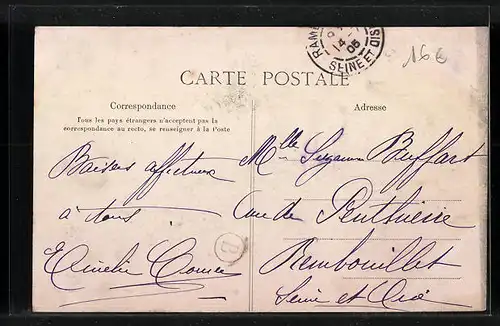 RAMB
14
06
SEINE ET OIS
16€
CARTE POSTALE
Correspondance
Tous les pays étrangers n'acceptent pas la
correspondance au recto, se renseigner à la Poste
Adresse
Baisers affectueux
à tous
Amélie
B
Melle Suzanne Buffart
rue de Penthièvre
Rambouillet
Seine et Oise